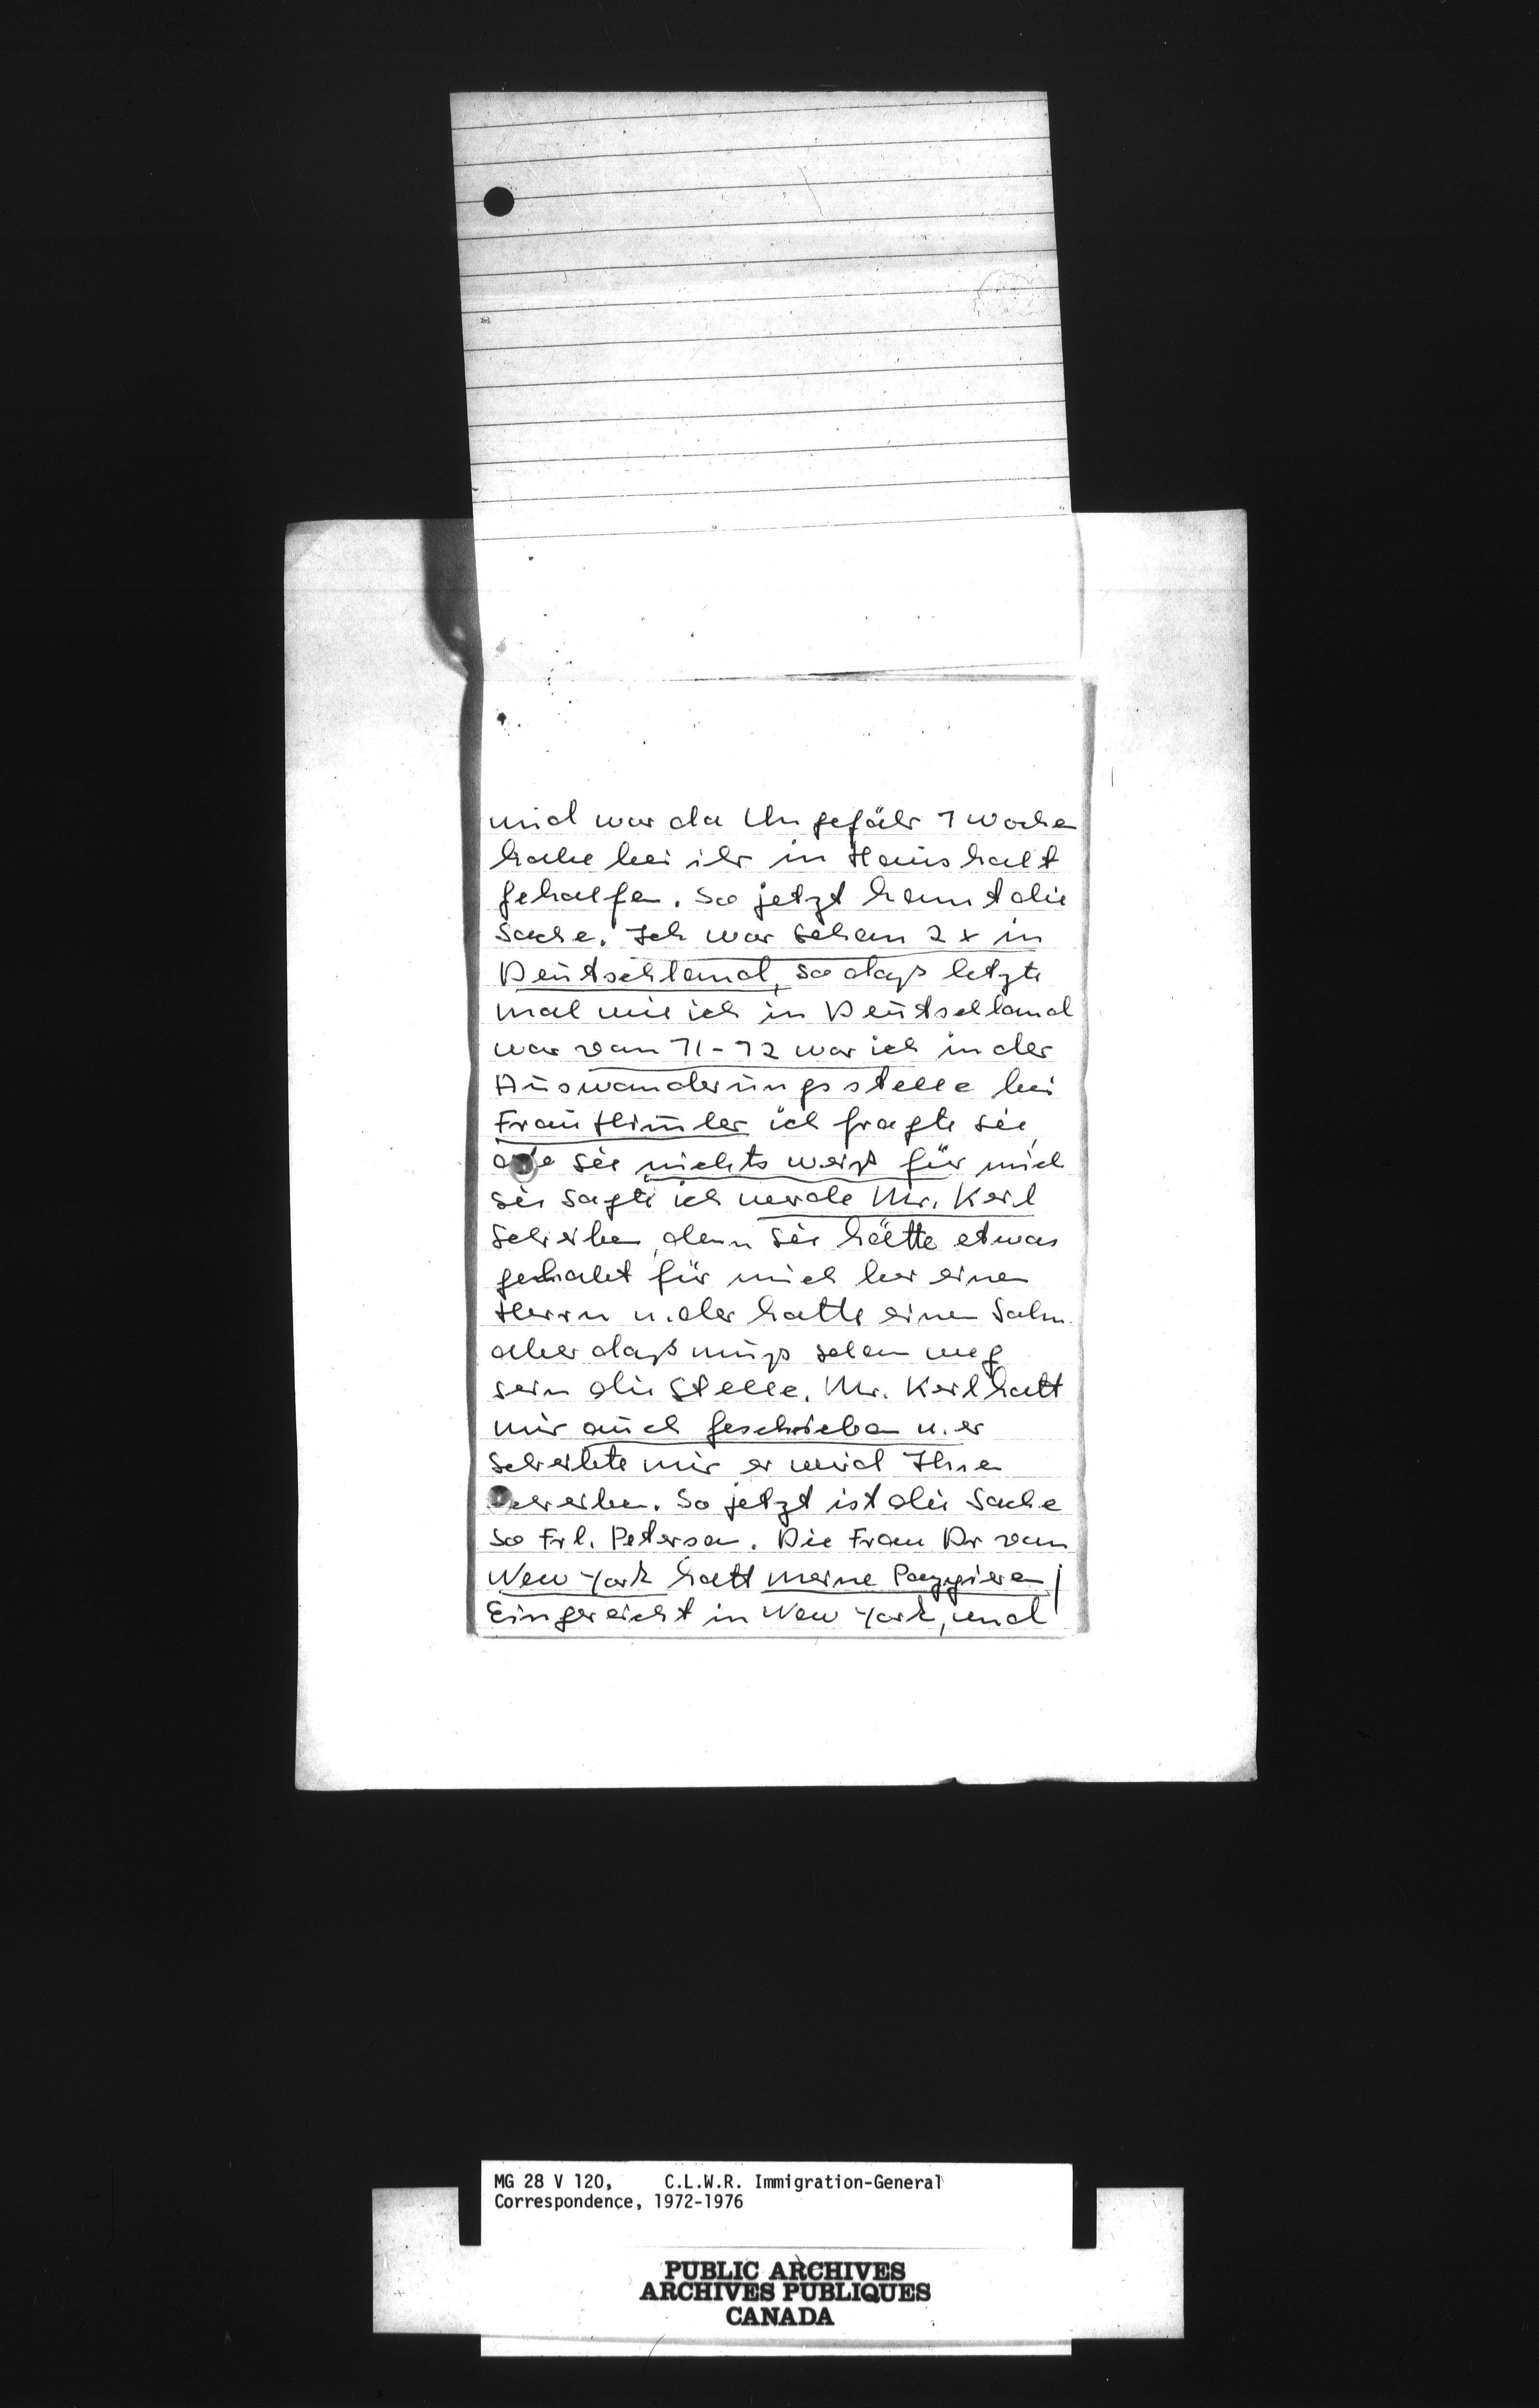 und war da Ungefähr 1 Woche
habe bei ihr in Haushalt
geholfen. So jetzt komt die
Sache. Ich war schon 2x in
Deutschland, so daß letzte
mal wie ich in Deutschland
war von 71-72 war ich in der
Auswanderungsstelle bei
Frau Himler ich fragte sie,
sie nichts weißt für mich
sie sagte ich werde Mr. Kerl
Schreiben, denn sie hätte etwas
gehabt für mich bei einen
Herrn u. der hatte einen Sohn
aber daß muß schon weg
sein die Stelle. Mr. Kerl hatt
mir auch geschrieben u. er
schreibte mir er wird Ihnen
schreiben. So jetzt ist die Sache
so Frl. Peterson. Die Frau Dr von
New York hatt meine Pappieren
Eingereicht in New York, und
MG 28 V 120, C.L.W.R. Immigration-General
Correspondence, 1972-1976
PUBLIC ARCHIVES
ARCHIVES PUBLIQUES
CANADA